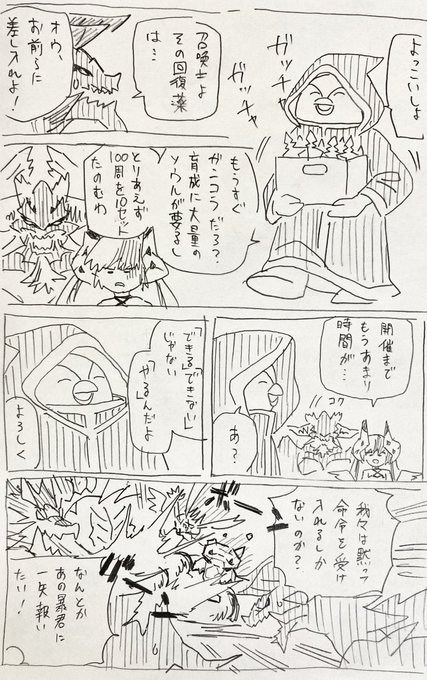 よっこいしょ
ガッチャ
ガッチャ
召喚士よ
その回復薬
は…
オウ、
お前らに
差し入れよ!
もうすぐ
ガ・コラだろ?
育成に大量の
ソウルが要るし
とりあえず
100周を10セット
たのむわ
開催まで
もうあまり
時間が…
コク
あ?
「できる」「できない」
じゃない
「やる」んだよ
よろしく
我々は黙って
命令を受け
入れるしか
ないのか?
なんとか
あの暴君に
一矢報い
たい!